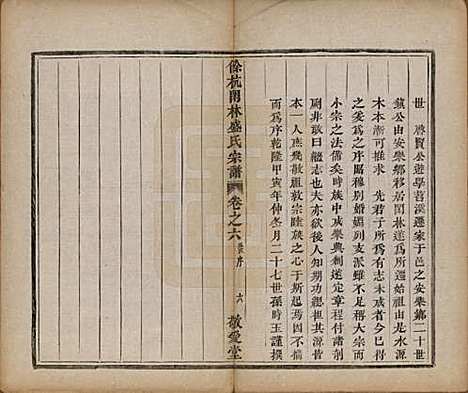 世　啓賢公遊學苕溪遷家于邑之安樂鄉二十世
鎮公由安樂鄉移居閑林遂爲所遷始祖由是水源
木本漸可推求　先君子所爲有志未逮者也
之爰爲之序昭穆別婚姻支派雖不足稱大宗而
小宗之法備矣時族中咸擧典剞遂定章程付諸剞
劂非敢曰繼志也夫亦欲後人知朔功總祖其源皆
本一人庶幾敬祖敦宗睦族之心于斯起焉因不辭
而爲序乾隆甲寅年仲冬月二十七世孫玉瑾撰
餘杭閑林盛氏宗譜
卷之六
序
六
敬愛堂